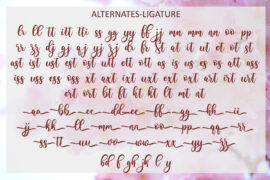 ALTERNATES-LIGATURE
br ll tt itt tti ss gg yy ff jj mm nn oo pp
rr zz dj gj aj yj zj tr fr st at it ut et ot st
ast ist ust est ost utt ett ott as is us es os att ass
iss uss ess oss xt axt ixt uxt ext oxt art irt urt
ert ort bt ft kt ht lt mt nt
aa bb ee dd ee ff gg ii
jj kk ll mm nn oo pp qq rr
ss tt uu vv ww xx yy zz